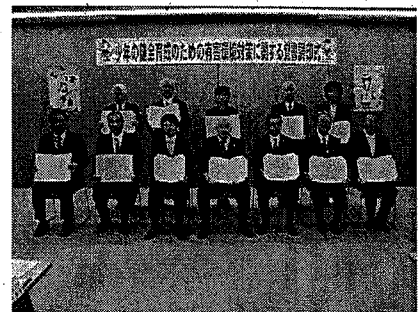 少年の健全育成のための有害環境対策に関する覚書調印式